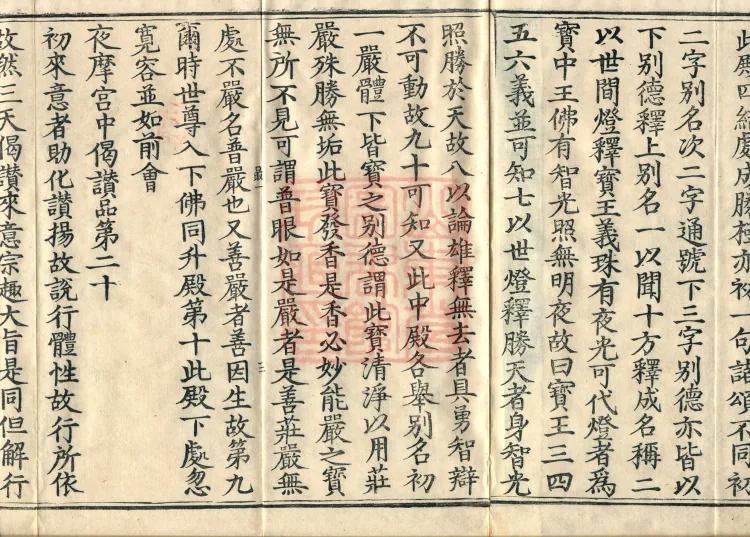 此殿四結處成勝極亦初一句諸頌不同初
二字別名次二字通號下三字別德亦皆以
下別德釋上別名一以聞十方釋成名稱二
以世間燈釋寶王義珠有夜光可代燈者為
寶中王佛有智光照無明夜故曰寶王三四
五六義並可知七以世燈釋勝天者身智光
照勝於天故八以論雄釋無去者具勇智辯
不可動故九十可知又此中殿各舉別名初
一嚴體下皆寶之別德謂此寶清淨以用莊
嚴殊勝無垢此寶發香是香必妙能嚴之寶
無所不見可謂普眼如是嚴者是善莊嚴無
嚴一
三
處不嚴名普嚴也又善嚴者善因生故第九
爾時世尊入下佛同升殿第十此殿下處忽
寬容並如前會
夜摩宮中偈讚品第二十
初來意者助化讚揚故說行體性故行所依
故然三天偈讚來意宗趣大旨是同但解行